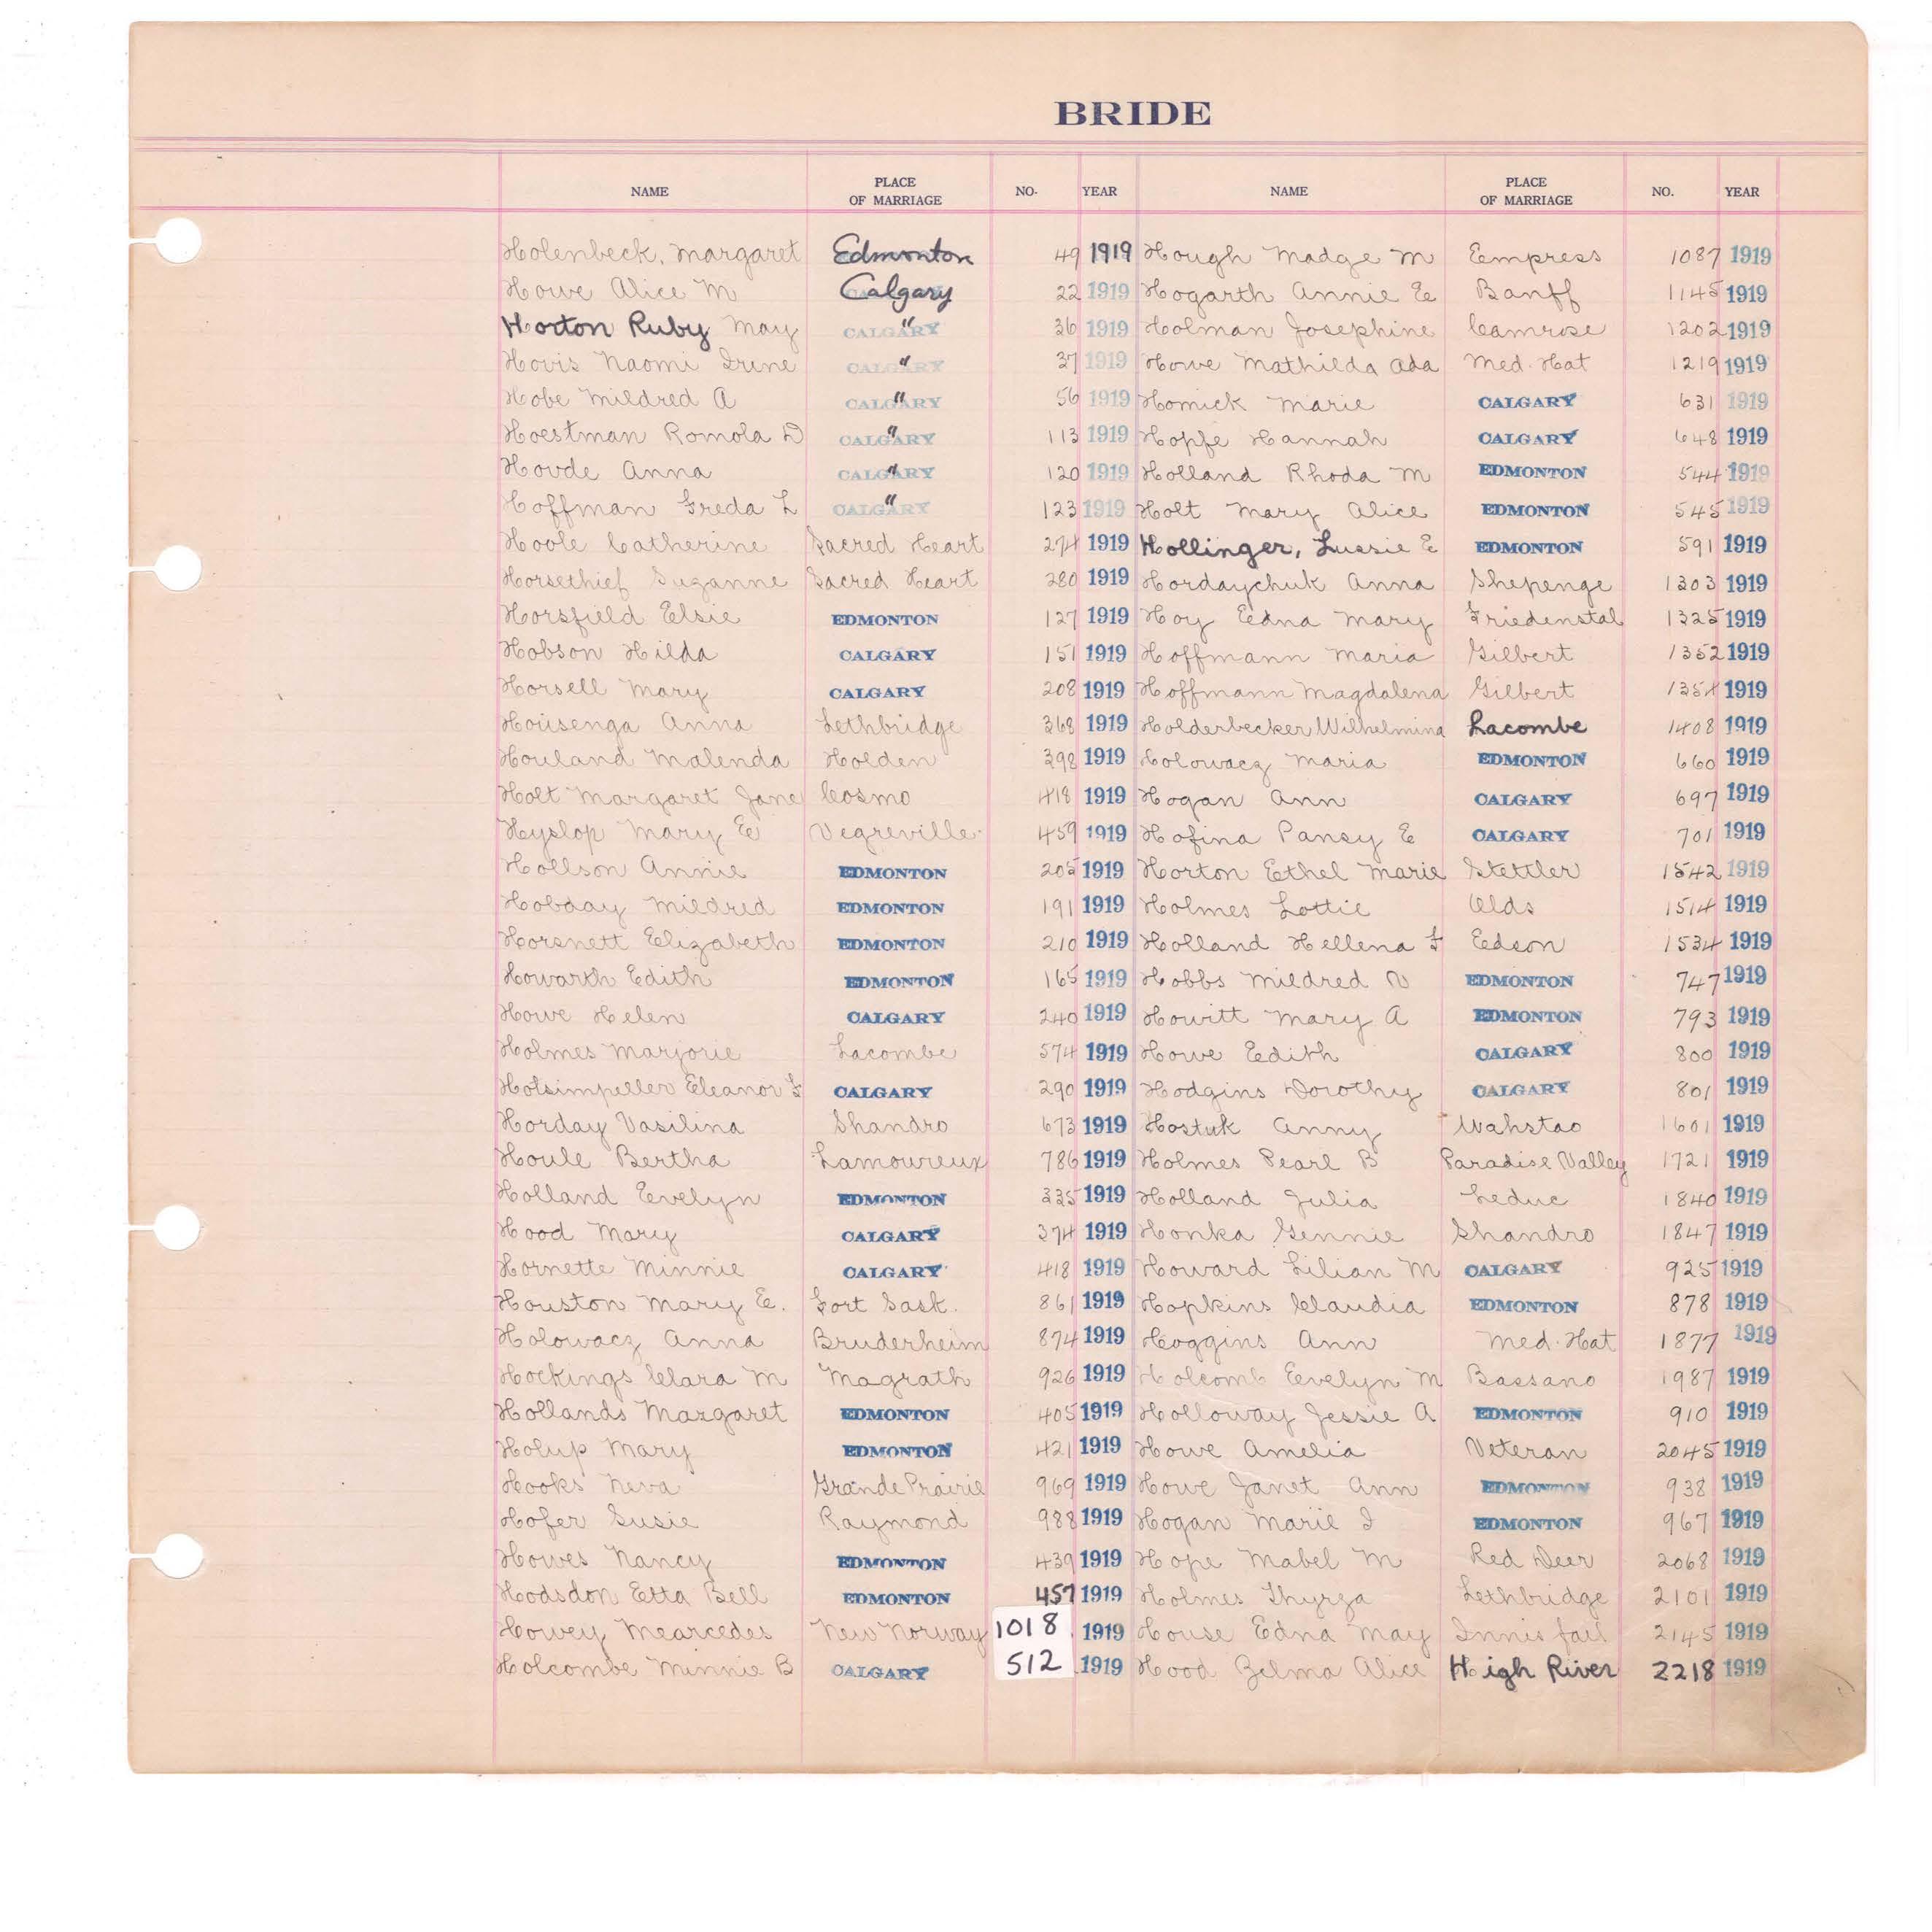 BRIDE
NAME PLACE OF MARRIAGE NO. YEAR NAME PLACE OF MARRIAGE NO. YEAR
Holenbeck, Margaret Edmonton 49 1919 Hough Madge M Empress 1087 1919
Howe Alice M Calgary 22 1919 Hogarth Annie E Banff 1145 1919
Horton Ruby May CALGARY " 36 1919 Holman Josephine Camrose 1202 1919
Hovis Naomi Irene CALGARY " 37 1919 Howe Mathilda Ada Med. Hat 1219 1919
Hobe Mildred A CALGARY " 56 1919 Homick Marie CALGARY 631 1919
Hoestman Romola D CALGARY " 113 1919 Hopfe Hannah CALGARY 648 1919
Hovde Anna CALGARY " 120 1919 Holland Rhoda M EDMONTON 544 1919
Hoffman Freda L CALGARY " 123 1919 Holt Mary Alice EDMONTON 545 1919
Hoole Catherine Sacred Heart 274 1919 Hollinger, Lussie E EDMONTON 591 1919
Horsethief Suzanne Sacred Heart 280 1919 Hordaychuk Anna Shepenge 1303 1919
Horsfield Elsie EDMONTON 127 1919 Hoy Edna Mary Friedenstal 1325 1919
Hobson Hilda CALGARY 151 1919 Hoffmann Maria Gilbert 1352 1919
Horsell Mary CALGARY 208 1919 Hoffmann Magdalena Gilbert 1354 1919
Housenga Anna Lethbridge 368 1919 Holderbecker Wilhelmina Lacombe 1408 1919
Houland Malenda Holden 398 1919 Holowacz Maria EDMONTON 660 1919
Holt Margaret Jane Cosmo 418 1919 Hogan Ann CALGARY 697 1919
Hyslop Mary E Vegreville 459 1919 Hofina Pansy E CALGARY 701 1919
Hollson Annie EDMONTON 205 1919 Horton Ethel Marie Stettler 1542 1919
Hobday Mildred EDMONTON 191 1919 Holmes Lottie Olds 1514 1919
Horsnett Elizabeth EDMONTON 210 1919 Holland Hellena F Edson 1534 1919
Howarth Edith EDMONTON 165 1919 Hobbs Mildred V EDMONTON 747 1919
Howe Helen CALGARY 240 1919 Howitt Mary A EDMONTON 793 1919
Holmes Marjorie Lacombe 574 1919 Howe Edith CALGARY 800 1919
Holsimpeller Eleanor F CALGARY 290 1919 Hodgins Dorothy CALGARY 801 1919
Horday Vasilina Shandro 673 1919 Hostuk Anny Wahstao 1601 1919
Houle Bertha Lamoureux 786 1919 Holmes Pearl B Paradise Valley 1721 1919
Holland Evelyn EDMONTON 335 1919 Holland Julia Leduc 1840 1919
Hood Mary CALGARY 374 1919 Honka Gennie Shandro 1847 1919
Hornette Minnie CALGARY 418 1919 Howard Lilian M CALGARY 925 1919
Houston Mary E. Fort Sask. 861 1919 Hopkins Claudia EDMONTON 878 1919
Holowacz Anna Bruderheim 874 1919 Hoggins Ann Med. Hat 1877 1919
Hockings Clara M Magrath 926 1919 Holcomb Evelyn M Bassano 1987 1919
Hollands Margaret EDMONTON 405 1919 Holloway Jessie A EDMONTON 910 1919
Holup Mary EDMONTON 421 1919 Howe Amelia Veteran 2045 1919
Hooks Neva Grande Prairie 969 1919 Howe Janet Ann EDMONTON 938 1919
Hofer Susie Raymond 988 1919 Hogan Marie I EDMONTON 967 1919
Howes Nancy EDMONTON 439 1919 Hope Mabel M Red Deer 2068 1919
Hodsdon Etta Bell EDMONTON 457 1919 Holmes Thyrza Lethbridge 2101 1919
Howey Mearcedes New Norway 1018 1919 House Edna May Innisfail 2145 1919
Holcombe Minnie B CALGARY 512 1919 Hood Zelma Alice High River 2218 1919